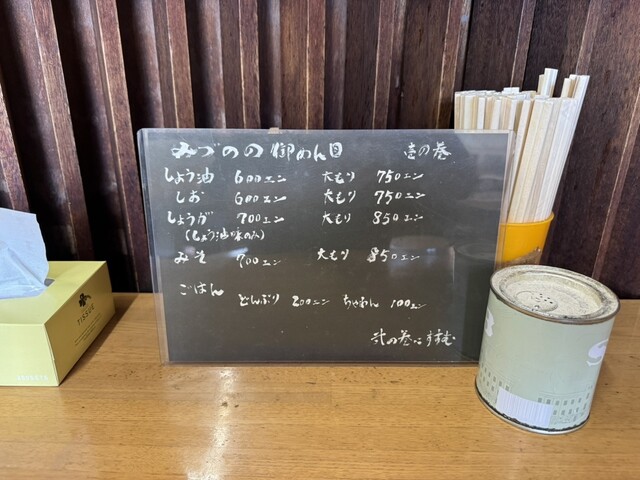 みづのの御めん目 壱の巻
しょう油 600エン 大もり 750エン
しお 600エン 大もり 750エン
しょうが 700エン 大もり 850エン
(しょう油味のみ)
みそ 700エン 大もり 850エン
ごはん どんぶり 200エン ちゃわん 100エン
弐の巻にすすむ
TISSUE